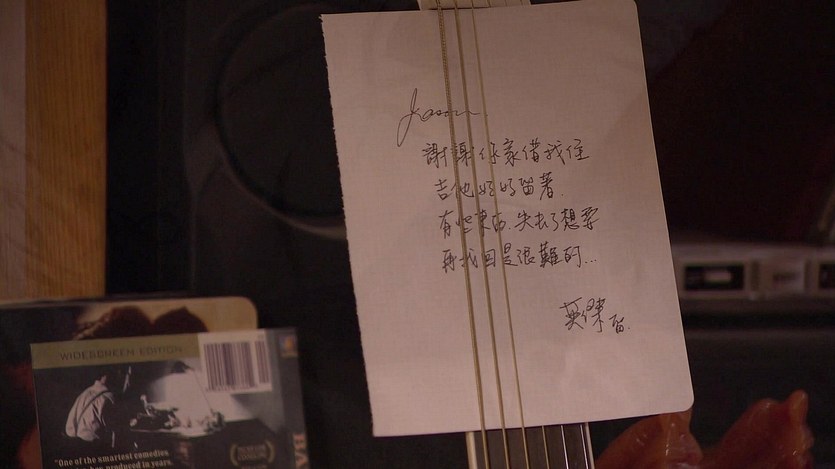 Jason
謝謝你家借我住
吉他好好留著
有些東西,失去了想要
再找回是很難的...
英傑 留.
WIDESCREEN EDITION
"One of the smartest comedies
produced in years.